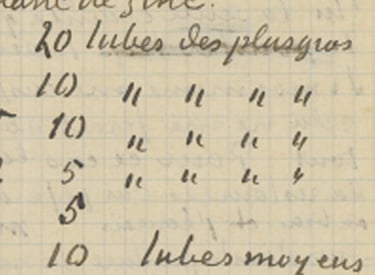 de zinc.
20 tubes des plus gros
10 " " " "
10 " " " "
5 " " " "
5
10 tubes moyens